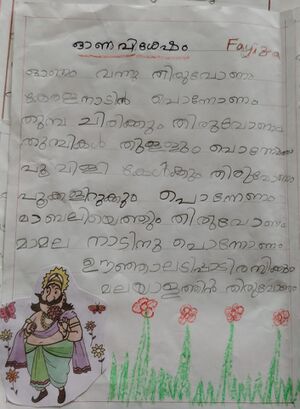 ഓണവിശേഷം
Fayiza
ഓണം വന്നു തിരുവോണം
കേരളനാടിൻ പൊന്നോണം
തുമ്പ ചിരിക്കും തിരുവോണം
തുമ്പികൾ തുള്ളും പൊന്നോണം
പൂവിളി കേൾക്കും തിരുവോണം
പൂക്കളിറുക്കും പൊന്നോണം
മാബലിയെത്തും തിരുവോണം
മാമല നാടിനു പൊന്നോണം
ഊഞ്ഞാലടിപ്പാടിരമ്പിക്കും
മലയാളത്തിൻ തിരുവോണം